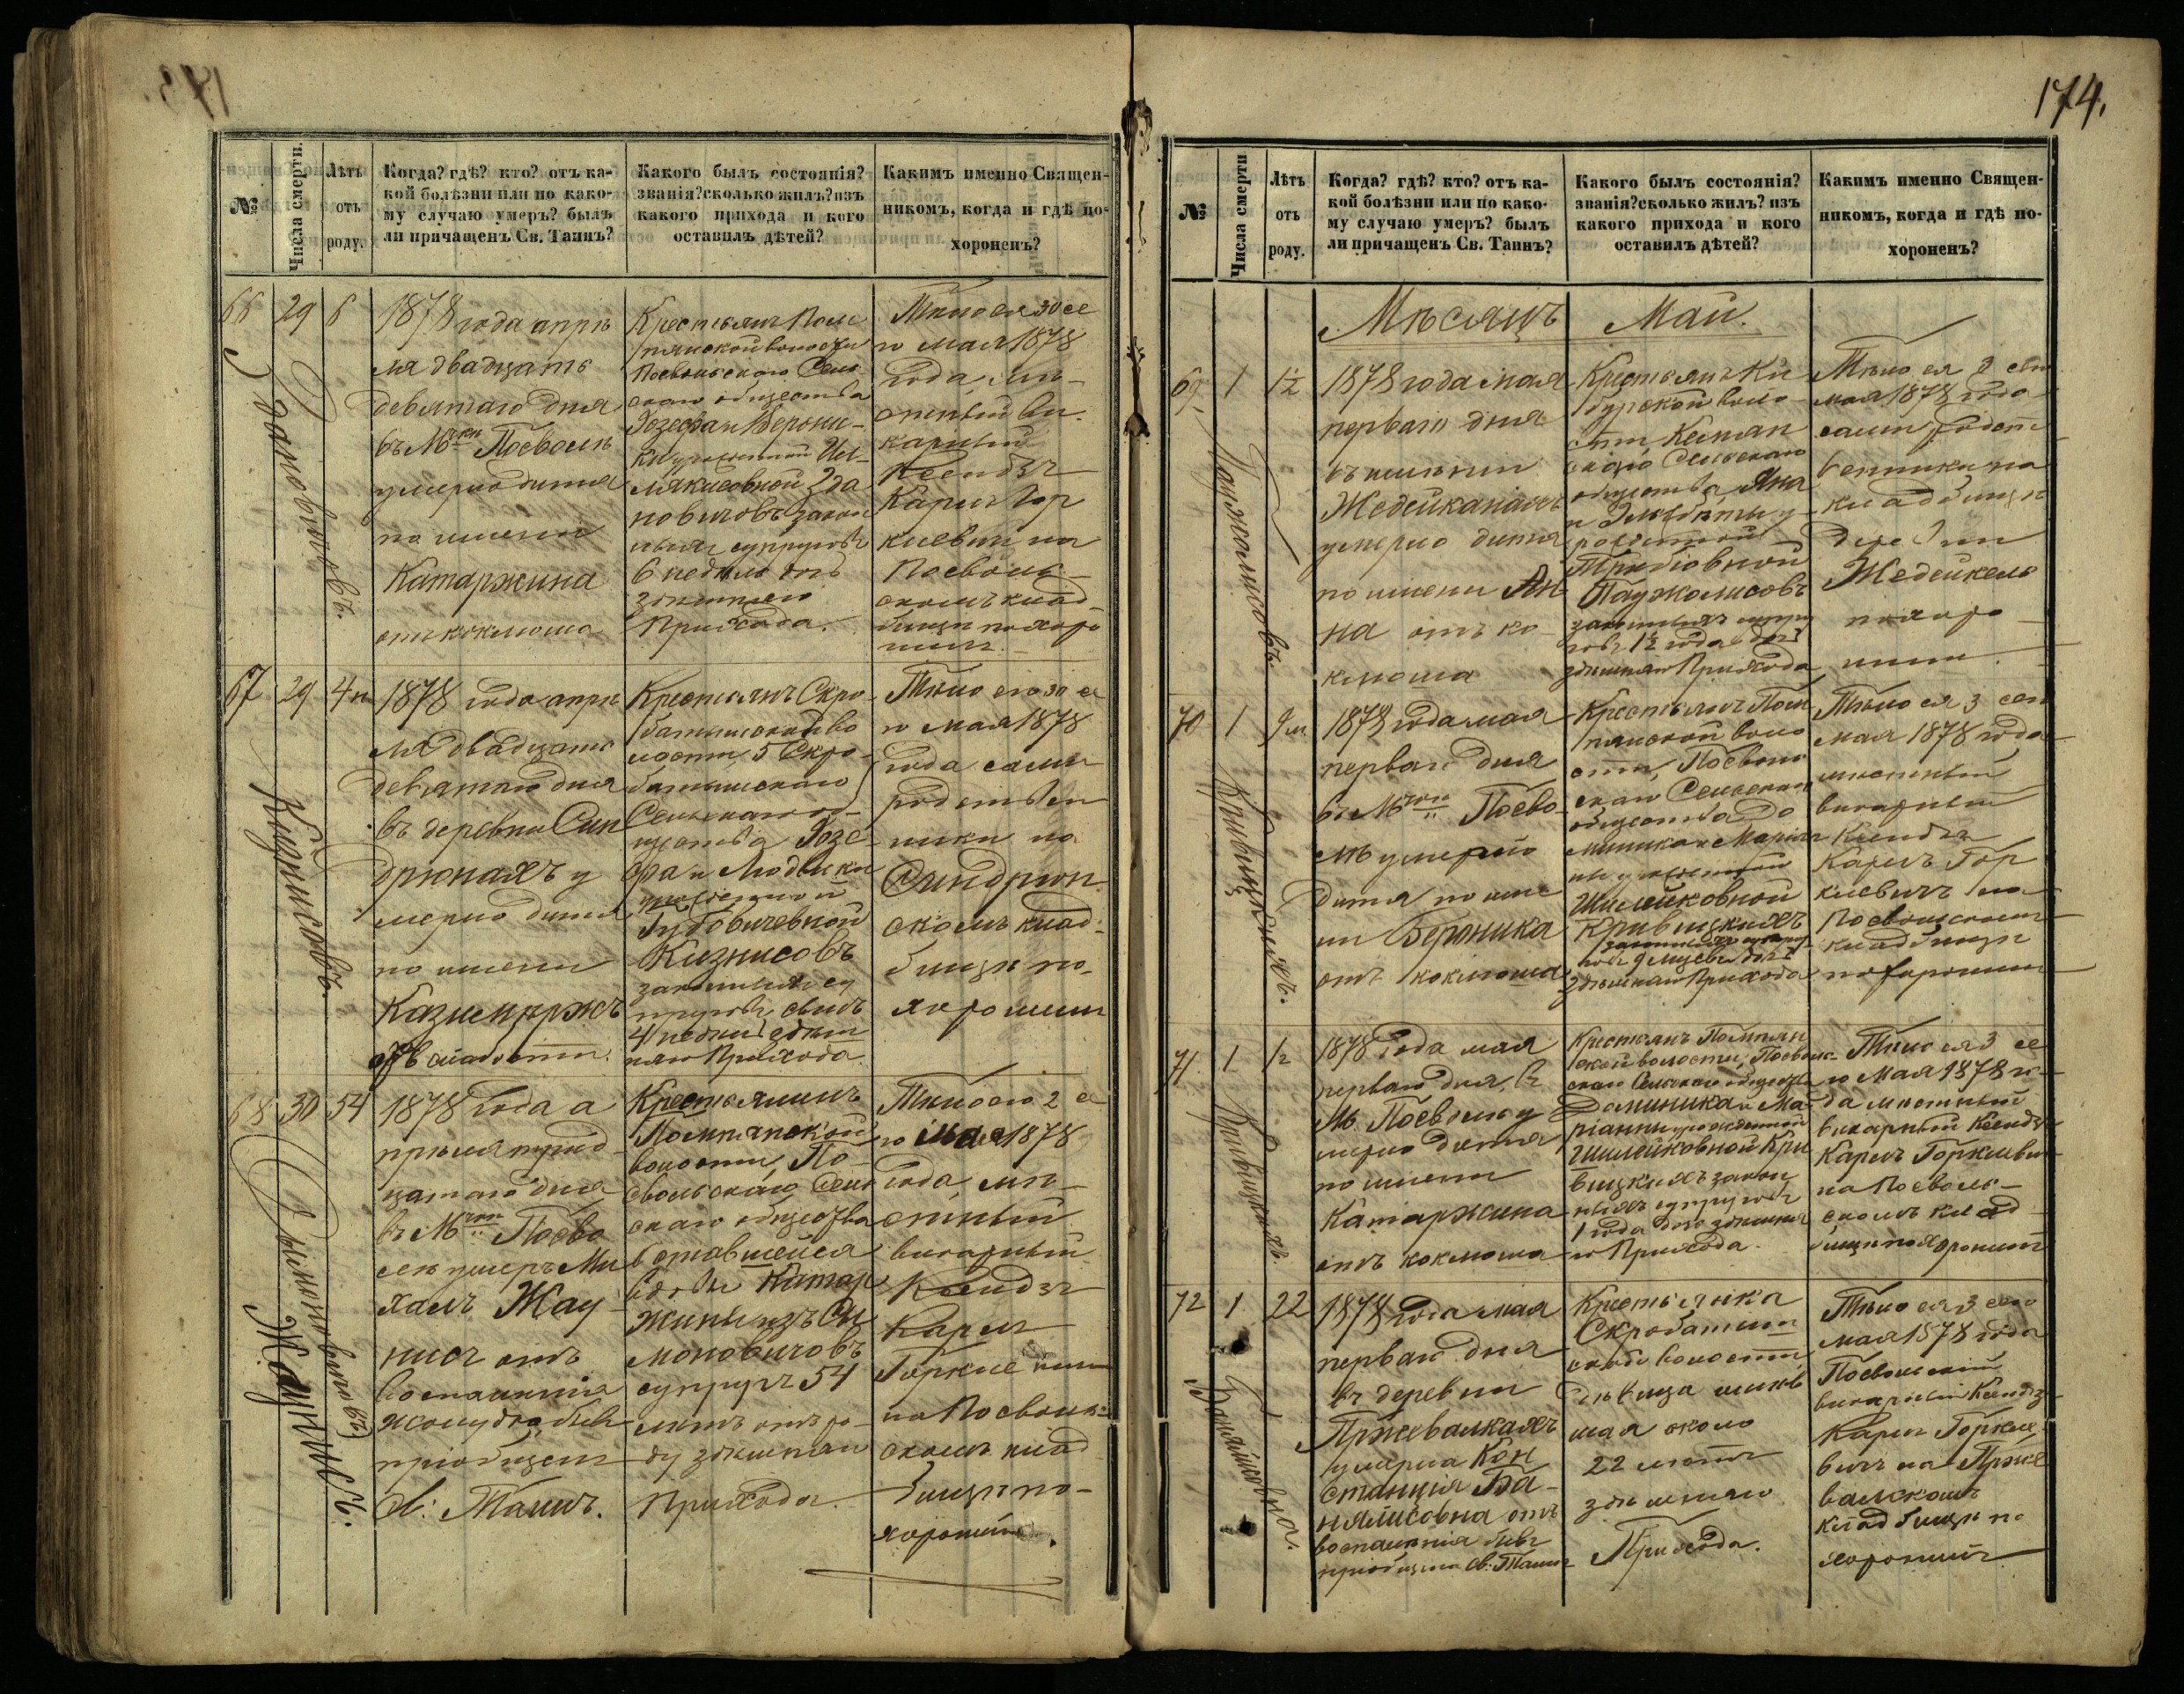 174.
№
Числа смерти.
Лѣтъ
отъ
роду.
Когда? гдѣ? кто? отъ ка-
кой болѣзни или по како-
му случаю умеръ? былъ
ли причащенъ Св. Таинъ?
Какого былъ состоянія?
званія? сколько жилъ? изъ
какого прихода и кого
оставилъ дѣтей?
Какимъ именно Священ-
никомъ, когда и гдѣ по-
хороненъ?
66
29
6
1878 года апрѣ
ля двадцать
девятаго дня
въ Мѣ Поеволѣ
умерло дитя
по имени
Катаржина
отъ коклюша
Крестьянъ Пом
пянской волости
Поевольскаго Сель
скаго общества
Іозефа и Верони-
ки урожденной
новичовъ закон
ныхъ супруговъ
6 недѣль дочь
здѣшняго
Прихода.
Тѣло ея 30 се
го мая 1878
года, мѣ-
стный ви-
карный
Ксендзъ
Карлъ Гор
кевичъ на
Поеволь-
скомъ клад-
бищѣ похоро
нилъ.
67
29
4 н
Кизнисовъ.
1878 года апрѣ
ля двадцать
девятаго дня
въ деревни Син
дрюнахъ у
мерло дитя
по имени
Казимиржъ
отъ слабости.
Крестьянъ Скро-
батишской во
лости, Скро-
батишскаго
Сельскаго об-
щества Іозе-
фа и Людвики
урожденной
Губовичевной
Кизнисовъ
законныхъ су
пруговъ сынъ
4 недѣли здѣш
няго Прихода
Тѣло его 30 се
го мая 1878
года сами
родствен
ники на
Синдрюн
скомъ клад-
бищѣ по-
хоронили
68
30
54
Жаунисъ.
1878 года а
прѣля трид-
цатаго дня
въ Мѣ Поево
лѣ умеръ Ми
халъ Жау-
нисъ отъ
воспаленія
желудка, бывъ
пріобщенъ
Св: Таинъ.
Крестьянинъ
Помпянской
волости, По-
евольскаго Сель
скаго общества
оставшейся
вдовы Катар
жины изъ Си
моновичовъ
супругъ 54
лѣтъ отъ ро-
ду здѣшняго
Прихода.
Тѣло его 2 се
го мая 1878
года, мѣ-
стный
викарный
Ксендзъ
Карлъ
Горкевичъ
на Поеволь-
скомъ клад
бищѣ по-
хоронилъ.
№
Числа смерти
Лѣтъ
отъ
роду.
Когда? гдѣ? кто? отъ ка-
кой болѣзни или по како-
му случаю умеръ? былъ
ли причащенъ Св. Таинъ?
Какого былъ состоянія?
званія? сколько жилъ? изъ
какого прихода и кого
оставилъ дѣтей?
Какимъ именно Священ-
никомъ, когда и гдѣ по-
хороненъ?
Мѣсяцъ Май.
69
1
1½
Паужолисовъ.
1878 года мая
перваго дня
въ имѣніи
Жедейканахъ
умерло дитя
по имени Ян
на отъ ко-
клюша
Крестьянъ Ки
бурской воло-
сти
скаго Сельскаго
общества, Яна
и Эльжбѣты у-
рожденной
Паужолисовъ
законныхъ супру
говъ 1½ года дочь
здѣшняго Прихода
Тѣло ея 2 сего
мая 1878 года
сами родст-
венники на
кладбищѣ
деревни
Жедейкель
похоро-
нили.
70
1
9 м
Кривицкихъ.
1878 года мая
перваго дня
въ Мѣ Поево-
лѣ умерло
дитя по име
ни Вероника
отъ коклюша
Крестьянъ Пом
пянской воло
сти, Поеволь
скаго Сельскаго
общества До
миника и Маріан
ны урожденной
Шилейковной
Кривицкихъ
законныхъ супру
говъ 9 мѣсяцевъ дочь
здѣшняго Прихода
Тѣло ея 3 сего
мая 1878 года
мѣстный
викарный
Ксендзъ
Карлъ Гор
кевичъ на
Поевольскомъ
кладбищѣ
похоронилъ
71
1
Кривицкихъ.
1878 года мая
перваго дня, въ
М. Поеволѣ у
мерло дитя
по имени
Катаржина
отъ коклюша
Крестьянъ Помпян
ской волости, Поеволь-
скаго Сельскаго общества
Доминика и Ма-
ріанны урожденной
Шилейковной Кри
вицкихъ закон
ныхъ супруговъ
1 года дочь здѣшня
го Прихода.
Тѣло ея 3 се
го Мая 1878 го-
да мѣстный
викарный Ксендзъ
Карлъ Горкевичъ
на Поеволь-
скомъ клад-
бищѣ похоронилъ
72
1
22
1878 года мая
перваго дня
въ деревни
Пржевалкахъ
умерла Кон
станція Ба-
нялисовна отъ
воспаленія бывъ
пріобщена Св. Таинъ
Крестьянка
Скробатиш
ской волости
дѣвица имѣв
шая около
22 лѣтъ
здѣшняго
Прихода.
Тѣло ея 3 сего
мая 1878 года
Поевольскій
викарный Ксендзъ
Карлъ Горке
вичъ на Прже
валскомъ
кладбищѣ по
хоронилъ